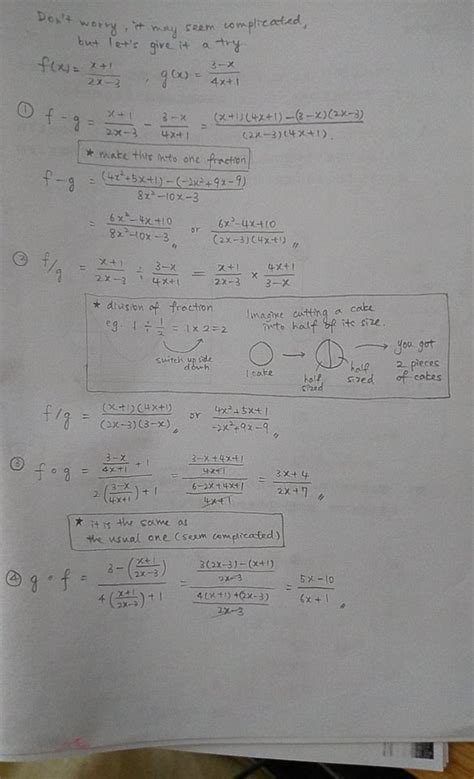 Don't worry, it may seem complicated,
but let's give it a try.
f(x) = (x+1)/(2x-3) , g(x) = (3-x)/(4x+1)
① f-g = (x+1)/(2x-3) - (3-x)/(4x+1) = ((x+1)(4x+1)-(3-x)(2x-3))/((2x-3)(4x+1)).
* make this into one fraction
f-g = ((4x²+5x+1)-(-2x²+9x-9))/(8x²-10x-3)
= (6x²-4x+10)/(8x²-10x-3) or (6x²-4x+10)/((2x-3)(4x+1))
② f/g = (x+1)/(2x-3) ÷ (3-x)/(4x+1) = (x+1)/(2x-3) × (4x+1)/(3-x)
* division of fraction
eg. 1 ÷ 1/2 = 1 x 2 = 2
switch upside
down
Imagine cutting a cake
into half of its size.
1 cake
half
sized
half
sized
you got
2 pieces
of cakes
f/g = ((x+1)(4x+1))/((2x-3)(3-x)) or (4x²+5x+1)/(-2x²+9x-9)
③ f∘g = ((3-x)/(4x+1) + 1)/(2((3-x)/(4x+1)) + 1) = ((3-x+4x+1)/(4x+1))/((6-2x+4x+1)/(4x+1)) = (3x+4)/(2x+7)
* it is the same as
the usual one (seem complicated)
④ g∘f = (3-((x+1)/(2x-3)))/(4((x+1)/(2x-3))+1) = ((3(2x-3)-(x+1))/(2x-3))/((4(x+1)+(2x-3))/(2x-3)) = (5x-10)/(6x+1)